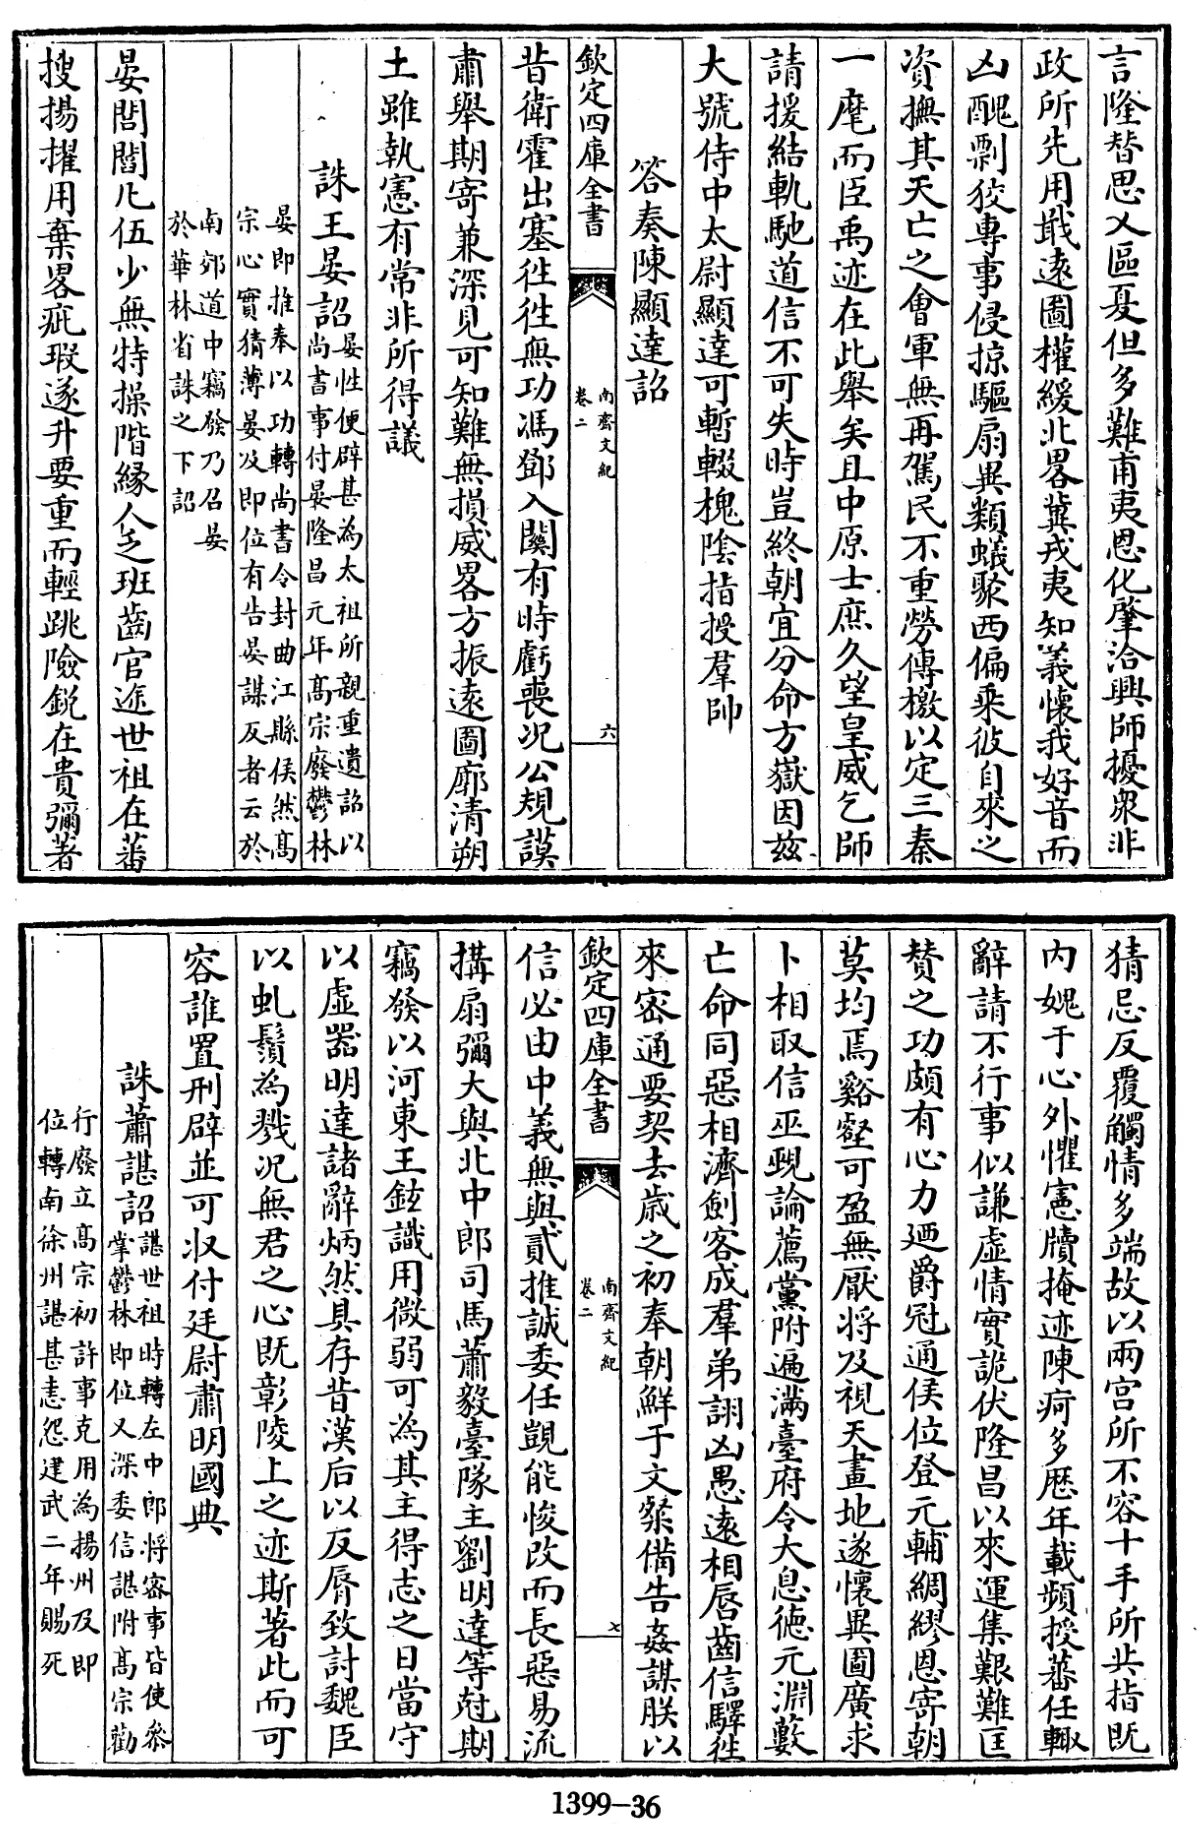 言隆替思乂區夏但多難甫夷恩化肇洽興師擾衆非
政所先用戢遠圖權緩北畧冀戎夷知義懷我好音而
凶醜剽狡專事侵掠驅扇異類蟻聚西偏乘彼自來之
資撫其天亡之會軍無再駕民不重勞傳檄以定三秦
一麾而臣禹迹在此舉矣且中原士庶久望皇威乞師
請援結軌馳道信不可失時豈終朝宜分命方嶽因兹
大號侍中太尉顯達可暫輟槐陰指授羣帥
答奏陳顯達詔
欽定四庫全書
南齊文紀
卷二
六
昔衛霍出塞徃徃無功馮鄧入關有時虧喪况公規謨
肅舉期寄兼深見可知難無損威畧方振遠圖廓清朔
土雖執憲有常非所得議
誅王晏詔
晏性便辟甚為太祖所親重遺詔以
尚書事付晏隆昌元年髙宗廢鬱林
晏即推奉以功轉尚書令封曲江縣侯然髙
宗心實猜薄晏及即位有告晏謀反者云於
南郊道中竊發乃召晏
於華林省誅之下詔
晏閭閻凡伍少無特操階緣人乏班齒官途世祖在蕃
搜揚擢用棄畧疵瑕遂升要重而輕跳險鋭在貴彌著
猜忌反覆觸情多端故以兩宫所不容十手所共指既
内媿于心外懼憲牘掩迹陳痾多歴年載頻授蕃任輙
辭請不行事似謙虚情實詭伏隆昌以來運集艱難匡
賛之功頗有心力廼爵冠通侯位登元輔綢繆恩寄朝
莫均焉谿壑可盈無厭將及視天畫地遂懷異圖廣求
卜相取信巫覡論薦黨附遍滿臺府令大息徳元淵藪
亡命同惡相濟劍客成羣弟詡凶愚遠相唇齒信驛徃
來密通要契去歲之初奉朝鮮于文粲備告姦謀朕以
欽定四庫全書
南齊文紀
卷二
七
信必由中義無與貳推誠委任覬能悛改而長惡易流
搆扇彌大與北中郎司馬蕭毅臺隊主劉明達等尅期
竊發以河東王鉉識用微弱可為其主得志之日當守
以虚器明達諸辭炳然具存昔漢后以反脣致討魏臣
以虬鬚為戮况無君之心既彰陵上之迹斯著此而可
容誰寘刑辟並可収付廷尉肅明國典
誅蕭諶詔
諶世祖時轉左中郎將密事皆使叅
掌鬱林即位又深委信諶附髙宗勸
行廢立髙宗初許事克用為揚州及即
位轉南徐州諶甚恚怨建武二年賜死
1399-36